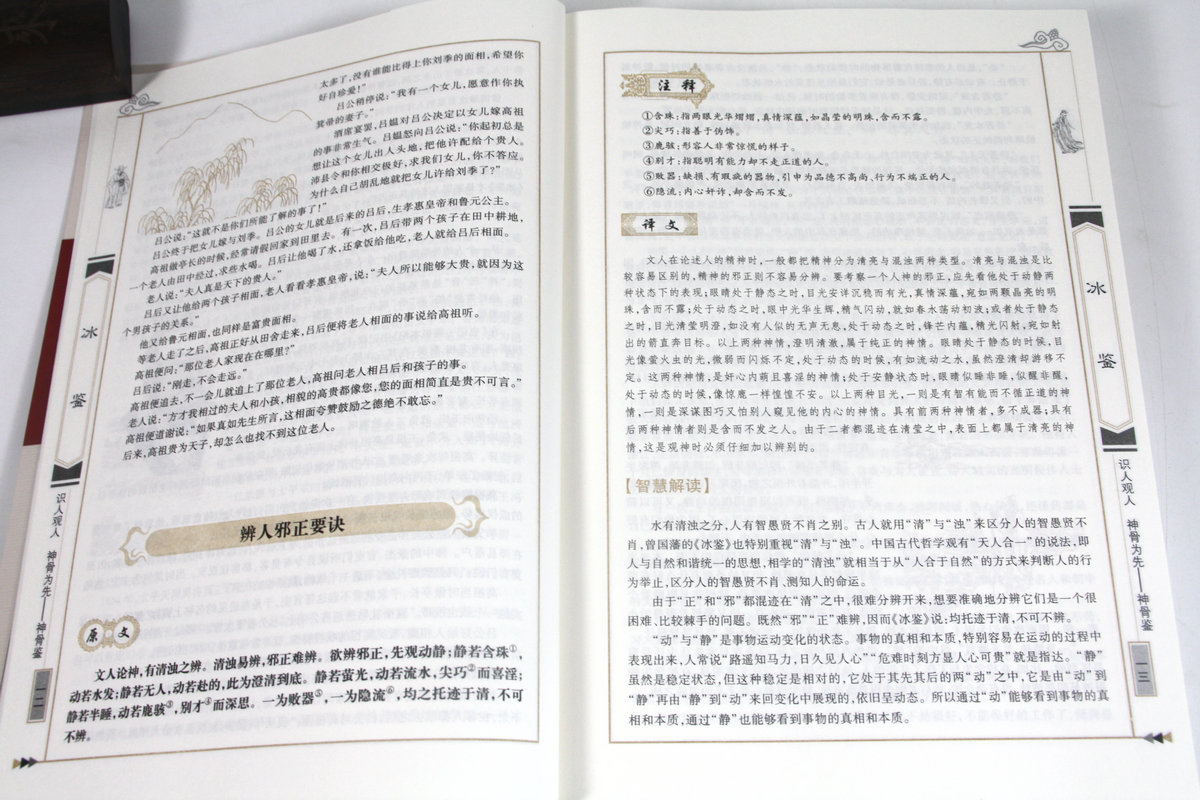 太多了,没有谁能比得上你刘季的面相,希望你
好自珍爱!”
吕公稍停说:“我有一个女儿,愿意作你执
箕帚的妻子。”
酒席宴罢,吕媪对吕公决定以女儿嫁高祖
的事非常生气。吕媪怒向吕公说:“你起初总是
想让这个女儿出人头地,把他许配给个贵人。
沛县令和你相交极好,求我们女儿,你不答应。
为什么自己胡乱地就把女儿许给刘季了?”
吕公说:“这就不是你们所能了解的事了!”
吕公终于把女儿嫁与刘季。吕公的女儿就是后来的吕后,生孝惠皇帝和鲁元公主。
高祖做亭长的时候,经常请假回家到田里去。有一次,吕后带两个孩子在田中耕地,
一个老人由田中经过,求些水喝。吕后让他喝了水,还拿饭给他吃,老人就给吕后相面。
老人说:“夫人真是天下的贵人。”
吕后又让他给两个孩子相面,老人看看孝惠皇帝,说:“夫人所以能够大贵,就因为这
个男孩子的关系。”
他又给鲁元相面,也同样是富贵面相。
等老人走了之后,高祖正好从田舍走来,吕后便将老人相面的事说给高祖听。
高祖便问:“那位老人家现在在哪里?”
吕后说:“刚走,不会走远。”
高祖便追去,不一会儿就追上了那位老人,高祖问老人相吕后和孩子的事。
老人说:“方才我相过的夫人和小孩,相貌的高贵都像您,您的面相简直是贵不可言。”
高祖便道谢说:“如果真如先生所言,这相面夸赞鼓励之德绝不敢忘。”
后来,高祖贵为天子,却怎么也找不到这位老人。
辨人邪正要诀
原文
文人论神,有清浊之辨。清浊易辨,邪正难辨。欲辨邪正,先观动静;静若含珠①,
动若水发;静若无人,动若赴的,此为澄清到底。静若萤光,动若流水,尖巧②而喜淫;
静若半睡,动若鹿骇③,别才④而深思。一为败器⑤,一为隐流⑥,均之托迹于清,不可
不辨。
冰
鉴
识人观人
神骨为先——神骨鉴
一二
注释
①含珠:指两眼光华熠熠,真情深蕴,如晶莹的明珠,含而不露。
②尖巧:指善于伪饰。
③鹿骇:形容人非常惊慌的样子。
④别才:指聪明有能力却不走正道的人。
⑤败器:缺损、有瑕疵的器物,引申为品德不高尚、行为不端正的人。
⑥隐流:内心奸诈,却含而不发。
译文
文人在论述人的精神时,一般都把精神分为清亮与混浊两种类型。清亮与混浊是比
较容易区别的,精神的邪正则不容易分辨。要考察一个人神的邪正,应先看他处于动静两
种状态下的表现;眼睛处于静态之时,目光安详沉稳而有光,真情深蕴,宛如两颗晶亮的明
珠,含而不露;处于动态之时,眼中光华生辉,精气闪动,就如春水荡动初波;或者处于静态
之时,目光清莹明澄,如没有人似的无声无息,处于动态之时,锋芒内蕴,精光闪射,宛如射
出的箭直奔目标。以上两种神情,澄明清澈,属于纯正的神情。眼睛处于静态的时候,目
光像萤火虫的光,微弱而闪烁不定,处于动态的时候,有如流动之水,虽然澄清却游移不
定。这两种神情,是奸心内萌且喜淫的神情;处于安静状态时,眼睛似睡非睡,似醒非醒,
处于动态的时候,像惊鹿一样惶惶不安。以上两种目光,一则是有智有能而不循正道的神
情,一则是深谋图巧又怕别人窥见他的内心的神情。具有前两种神情者,多不成器;具有
后两种神情者则是含而不发之人。由于二者都混迹在清莹之中,表面上都属于清亮的神
情,这是观神时必须仔细加以辨别的。
【智慧解读】
水有清浊之分,人有智愚贤不肖之别。古人就用“清”与“浊”来区分人的智愚贤不
肖,曾国藩的《冰鉴》也特别重视“清”与“浊”。中国古代哲学观有“天人合一”的说法,即
人与自然和谐统一的思想,相学的“清浊”就相当于从“人合于自然”的方式来判断人的行
为举止,区分人的智愚贤不肖、测知人的命运。
由于“正”和“邪”都混迹在“清”之中,很难分辨开来,想要准确地分辨它们是一个很
困难、比较棘手的问题。既然“邪”“正”难辨,因而《冰鉴》说:均托迹于清,不可不辨。
“动”与“静”是事物运动变化的状态。事物的真相和本质,特别容易在运动的过程中
表现出来,人常说“路遥知马力,日久见人心”“危难时刻方显人心可贵”就是指达。“静”
虽然是稳定状态,但这种稳定是相对的,它处于其先其后的两“动”之中,它是由“动”到
“静”再由“静”到“动”来回变化中展现的,依旧呈动态。所以通过“动”能够看到事物的真
相和本质,通过“静”也能够看到事物的真相和本质。
冰
鉴
识人观人
神骨为先——神骨鉴
一三